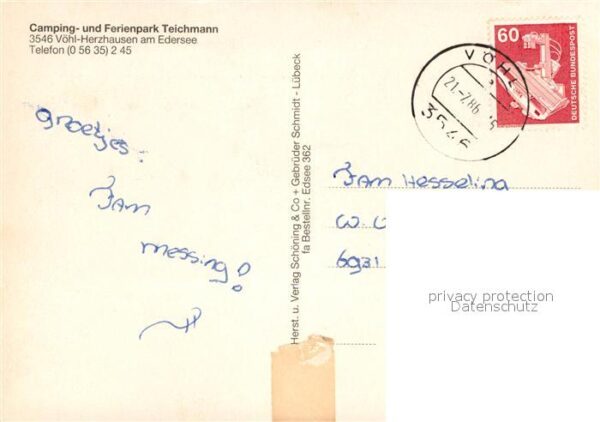 Camping- und Ferienpark Teichmann
3546 Vöhl-Herzhausen am Edersee
Telefon (0 56 35) 2 45
Groetjes:
Fam
messing!
Herst. u. Verlag Schöning & Co + Gebrüder Schmidt - Lübeck
fa Bestellnr. Edsee 362
60
DEUTSCHE BUNDESPOST
VÖHL
21.-7.86
3546
Fam Hesselina
W.
6931
privacy protection
Datenschutz